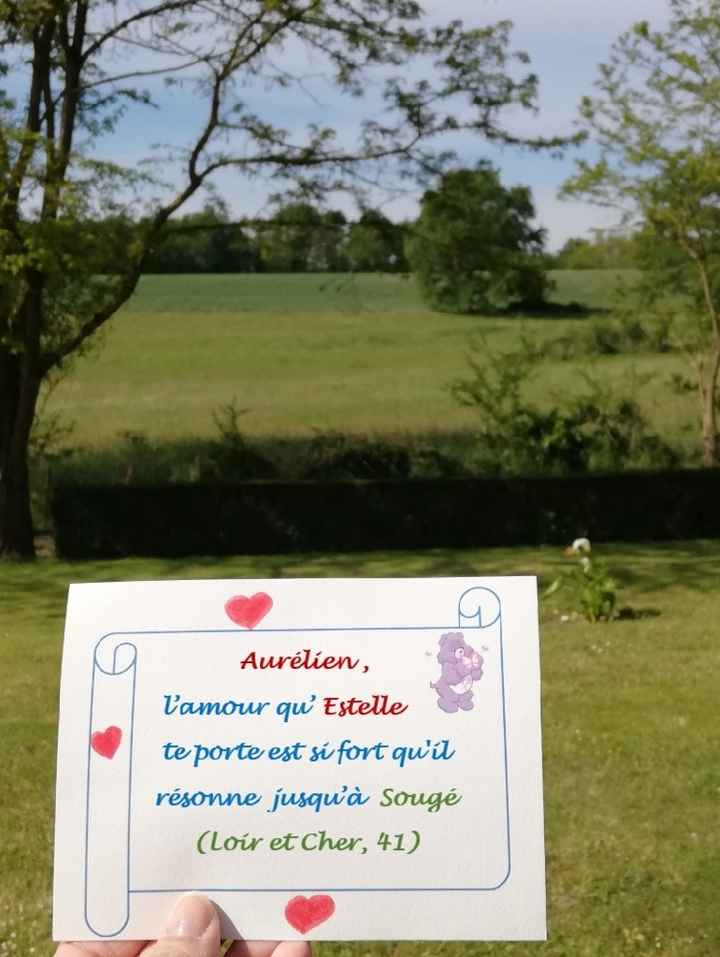 Aurélien,
l'amour qu' Estelle
te porte est si fort qu'il
résonne jusqu'à Sougé
(Loir et Cher, 41)